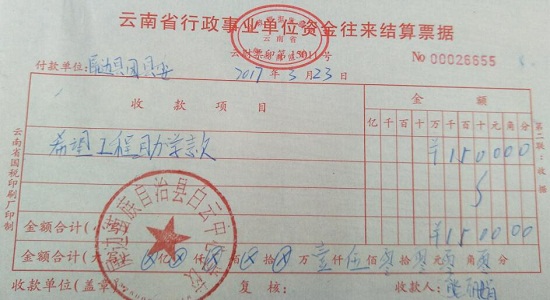 云南省行政事业单位资金往来结算票据
云财票印第15011号
No 00026655
付款单位:
2017年5月23日
收款项目
金额
亿千百十万千百十元角分
希望工程助学款
¥150000
金额合计(小写)
¥150000
金额合计(大写) ⊗亿⊗仟⊗佰⊗拾⊗万壹仟伍佰零拾零元零角零分
收款单位(盖章)
复核:
收款人:
云南省国税印刷厂印制
第二联:收据
族自治县白云中